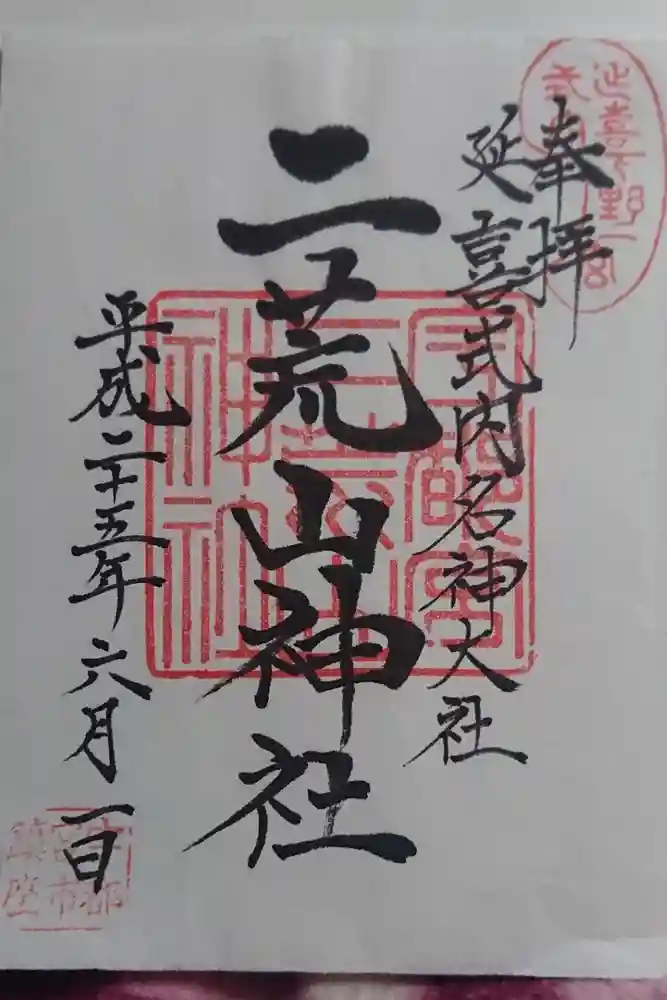 奉拝
延喜式内名神大社
二荒山神社
平成二十五年六月一日
宇都
宮市
鎮座